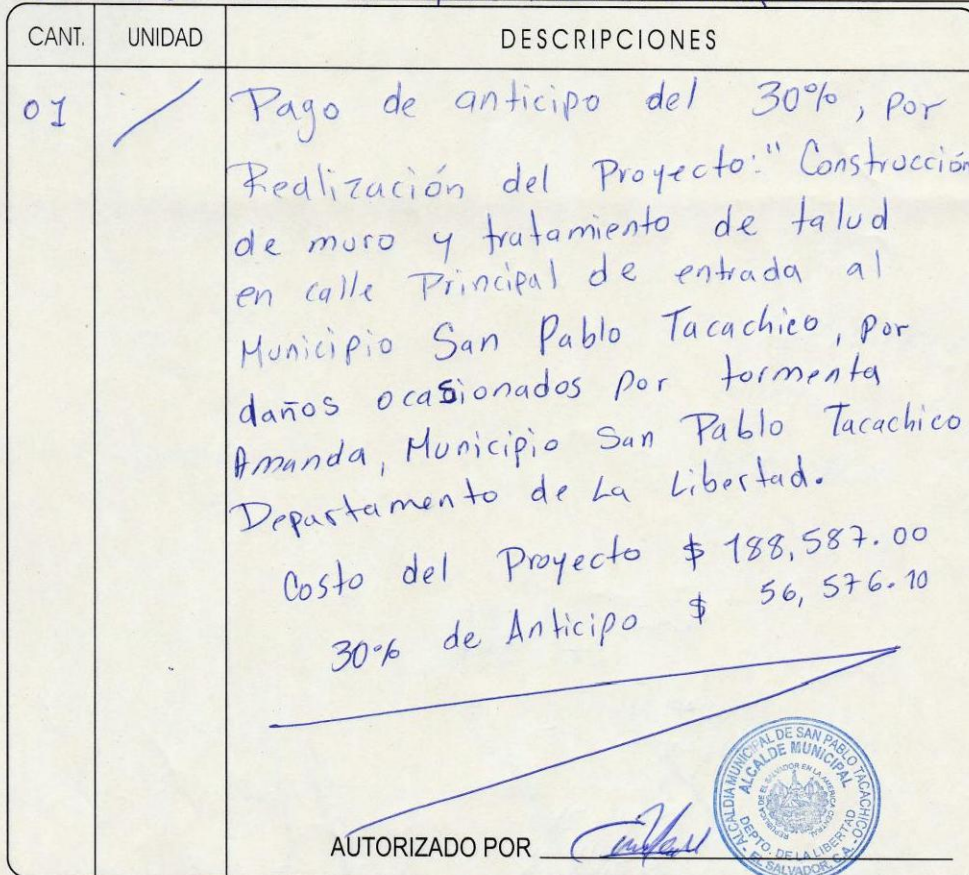 CANT. UNIDAD DESCRIPCIONES
01 Pago de anticipo del 30%, por
Realización del Proyecto: "Construcción
de muro y tratamiento de talud
en calle Principal de entrada al
Municipio San Pablo Tacachico, por
daños ocasionados por tormenta
Amanda, Municipio San Pablo Tacachico
Departamento de La Libertad.
Costo del Proyecto $ 188,587.00
30% de Anticipo $ 56,576.10
AUTORIZADO POR
ALCALDIA MUNICIPAL DE SAN PABLO TACACHICO
ALCALDE MUNICIPAL
DEPTO. DE LA LIBERTAD
EL SALVADOR, C.A.